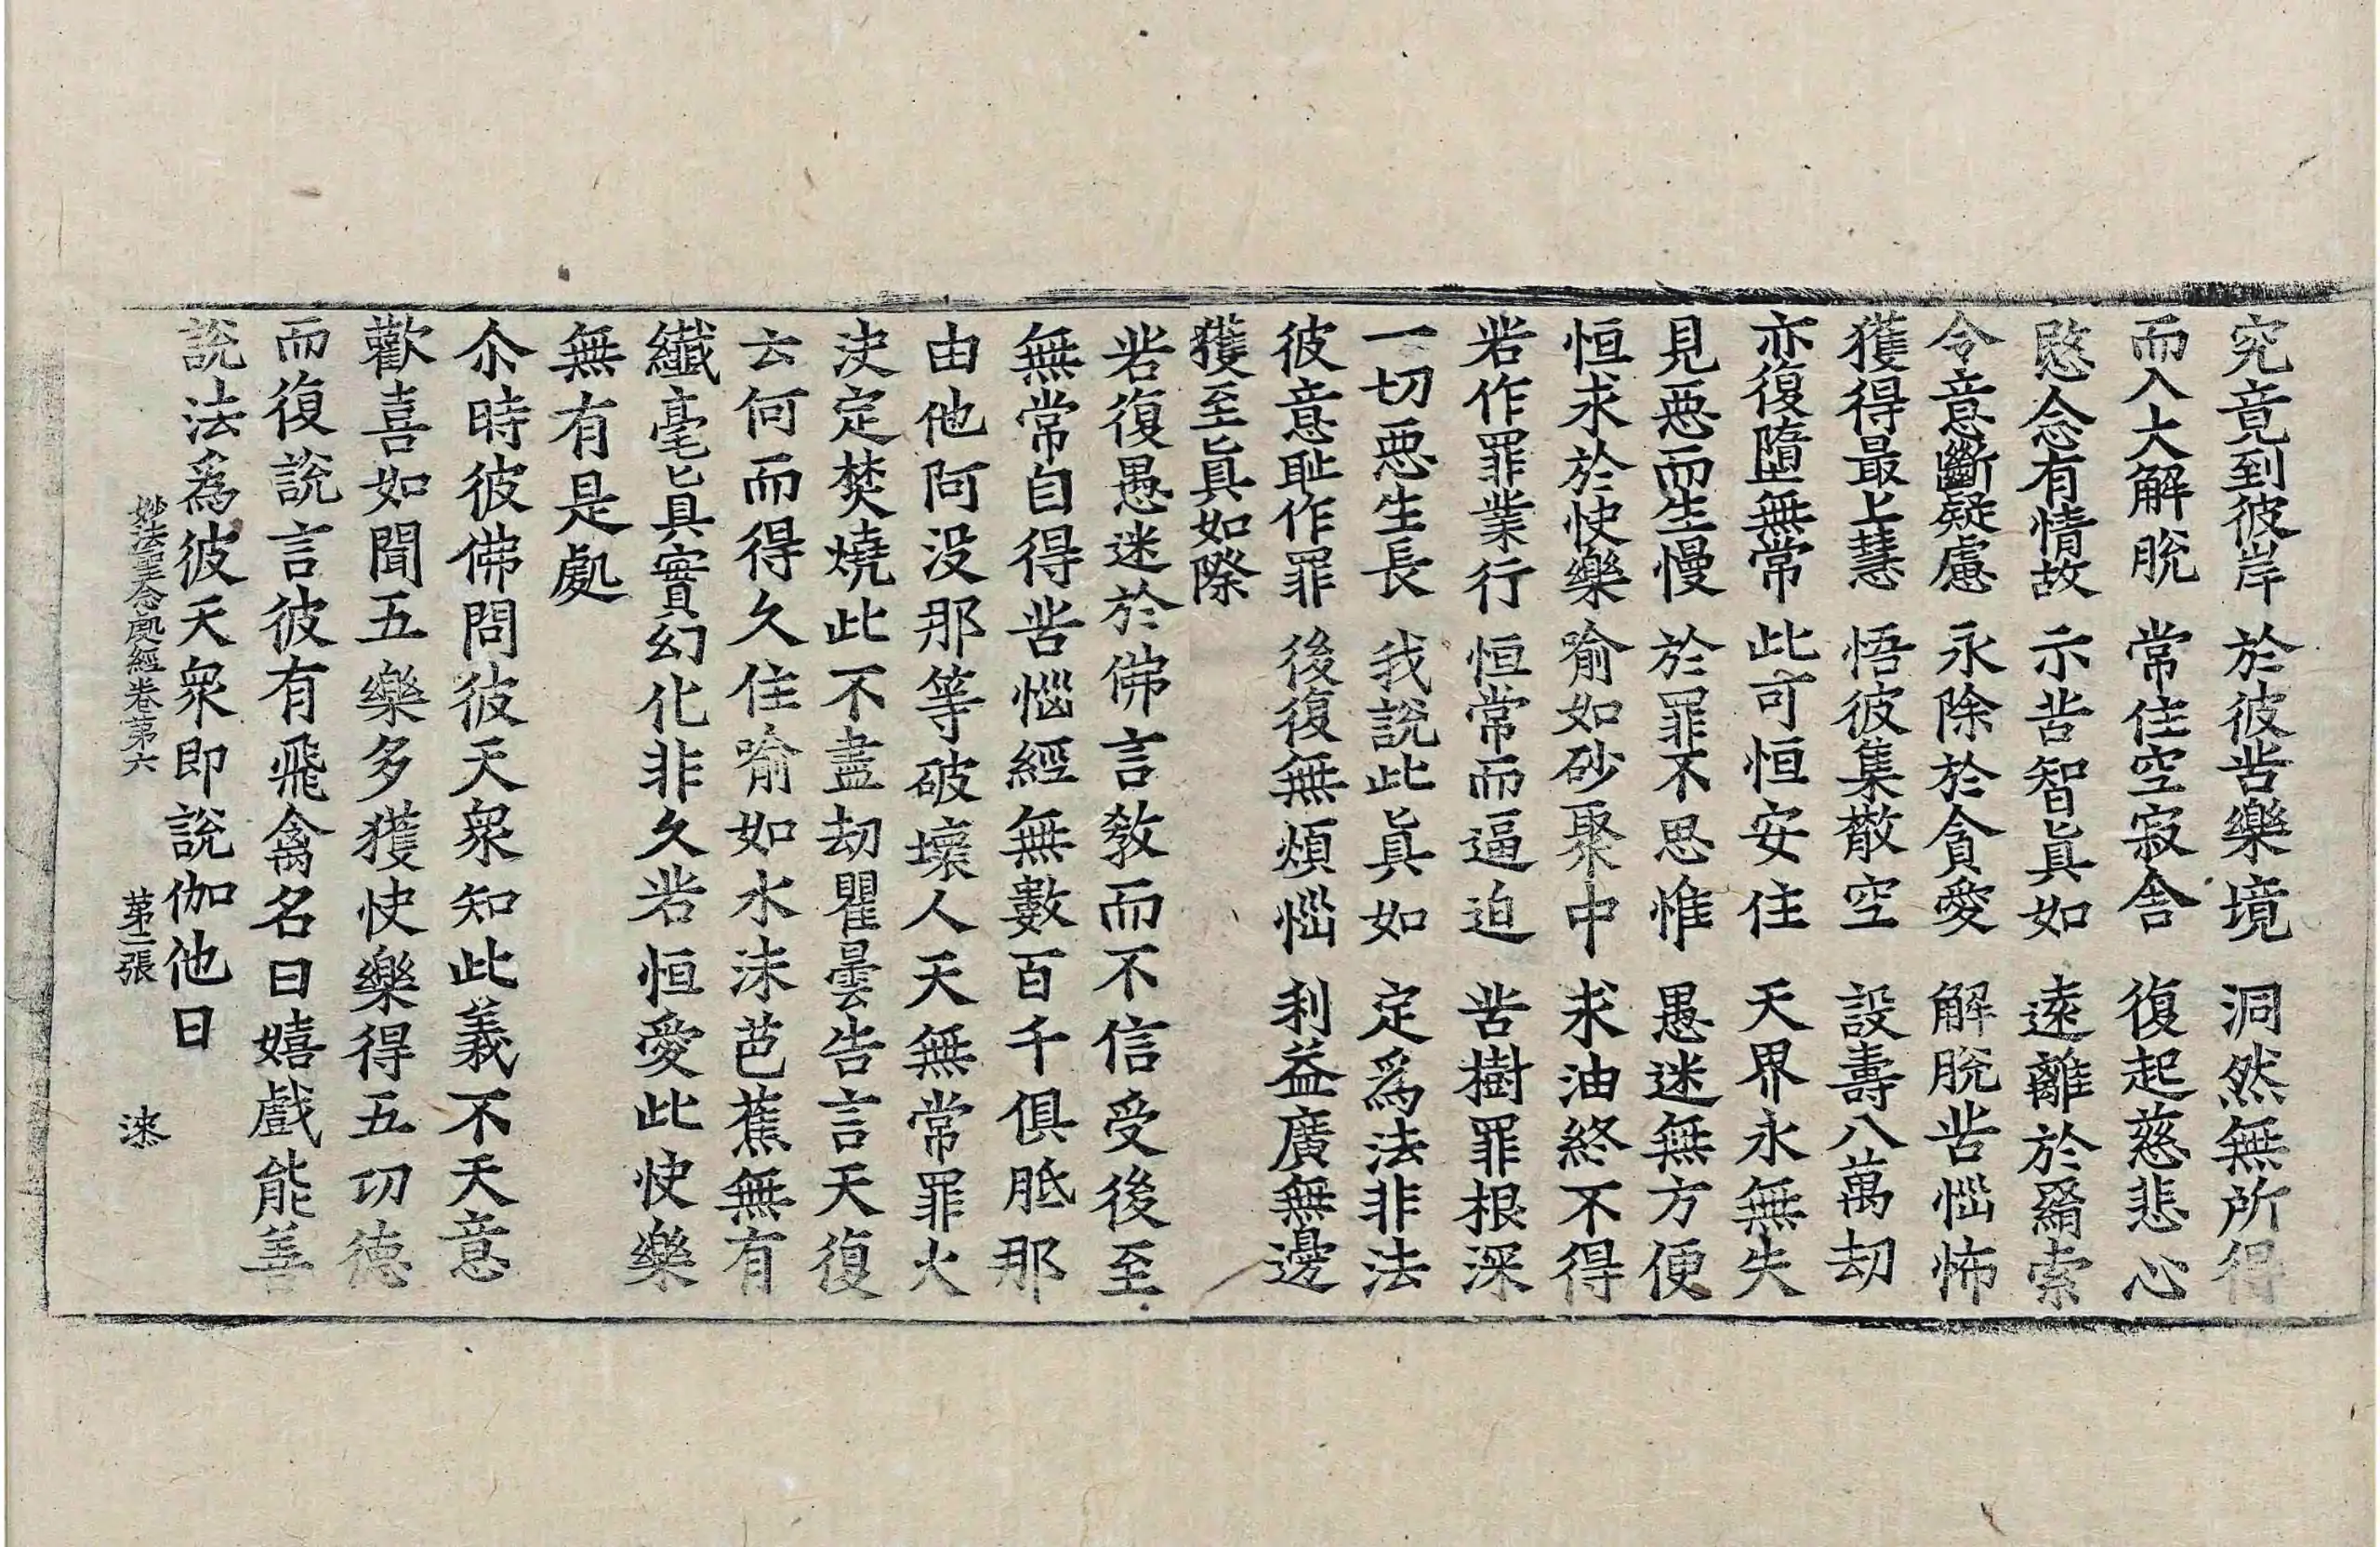 究竟到彼岸　於彼苦樂境　洞然無所得
而入大解脫　常住空寂舍　復起慈悲心
愍念有情故　示苦智眞如　遠離於羂索
令意斷疑慮　永除於貪愛　解脫苦惱怖
獲得最上慧　悟彼集散空　設壽八萬劫
亦復墮無常　此可恒安住　天界永無失
見惡而生慢　於罪不思惟　愚迷無方便
恒求於快樂　喻如砂聚中　求油終不得
若作罪業行　恒常而逼迫　苦樹罪根深
一切惡生長　我說此眞如　定爲法非法
彼意耻作罪　後復無煩惱　利益廣無邊
獲至眞如際
若復愚迷於佛言教而不信受後至
無常自得苦惱經無數百千俱胝那
由他阿没那等破壞人天無常罪火
決定焚燒此不盡劫瞿曇告言天復
云何而得久住喻如水沫芭蕉無有
纎毫眞實幻化非久若恒愛此快樂
無有是處
尒時彼佛問彼天衆知此義不天意
歡喜如聞五樂多獲快樂得五功德
而復說言彼有飛禽名曰嬉戲能善
說法爲彼天衆即說伽他曰
妙法聖念處經卷第六　第二張　淶